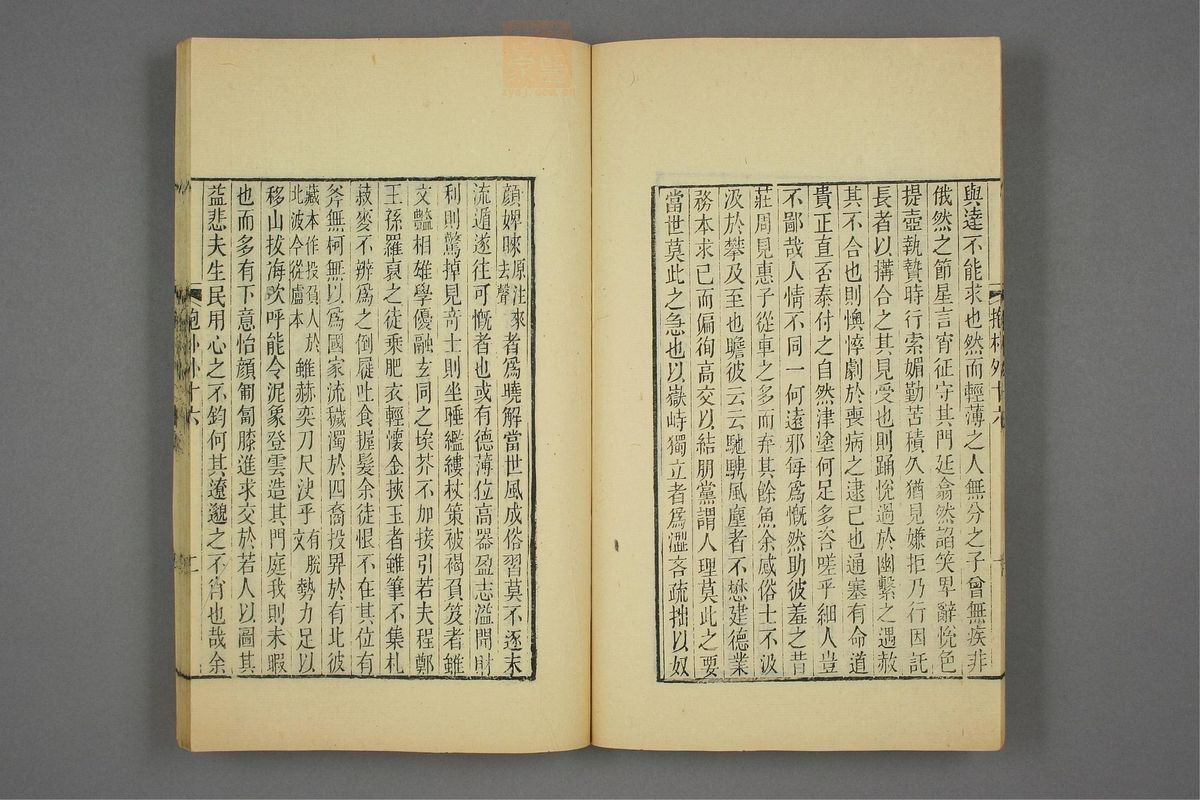 與達不能求也然而輕薄之人無分之子曾無疾非
俄然之節星言宵征守其門廷翕然諂笑卑辭悅色
提壺執贄時行索媚勤苦積久猶見嫌拒乃行因託
長者以搆合之其見受也則踊悅過於幽繫之遇赦
其不合也則懊悴劇於喪病之逮己也通塞有命道
貴正直否泰付之自然津塗何足多咨嗟乎細人豈
不鄙哉人情不同一何遠邪每爲慨然助彼羞之昔
莊周見惠子從車之多而弃其餘魚余感俗士不汲
汲於攀及至也瞻彼云云馳騁風塵者不懋建德業
務本求己而偏徇高交以結朋黨謂人理莫此之要
當世莫此之急也以嶽峙獨立者爲澀吝疏拙以奴
抱朴外十六
顔婢睞原注來去聲者爲曉解當世風成俗習莫不逐末
流遁遂往可慨者也或有德薄位高器盈志溢聞財
利則驚掉見奇士則坐睡繿縷杖策被褐負笈者雖
文豔相雄學優融玄同之埃芥不加接引若夫程鄭
王孫羅裒之徒乘肥衣輕懷金挾玉者雖筆不集札
菽麥不辨爲之倒屣吐食握髮余徒恨不在其位有
斧無柯無以爲國家流穢濁於四裔投畀於有北彼
藏本作投負人於北波今從盧本雖赫奕刀尺決乎有脫文勢力足以
移山拔海吹呼能令泥象登雲造其門庭我則未暇
也而多有下意怡顏匍匐膝進求交於若人以圖其
益悲夫生民用心之不鈞何其遼邈之不肖也哉余
抱朴外十六
十一